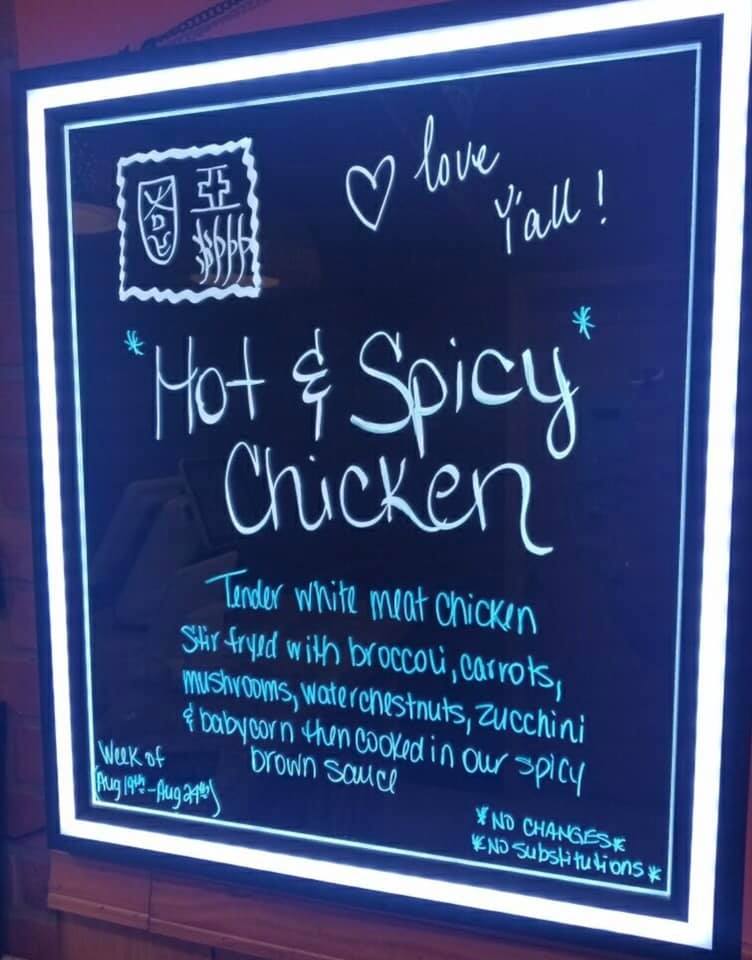 ♡ love
Y'all!
*Hot & Spicy*
Chicken
Tender white meat chicken
Stir fryed with broccoli, carrots,
mushrooms, waterchestnuts, zucchini
& babycorn then cooked in our spicy
brown sauce
Week of
(Aug 19th - Aug 24th)
*NO CHANGES*
*NO Substitutions*